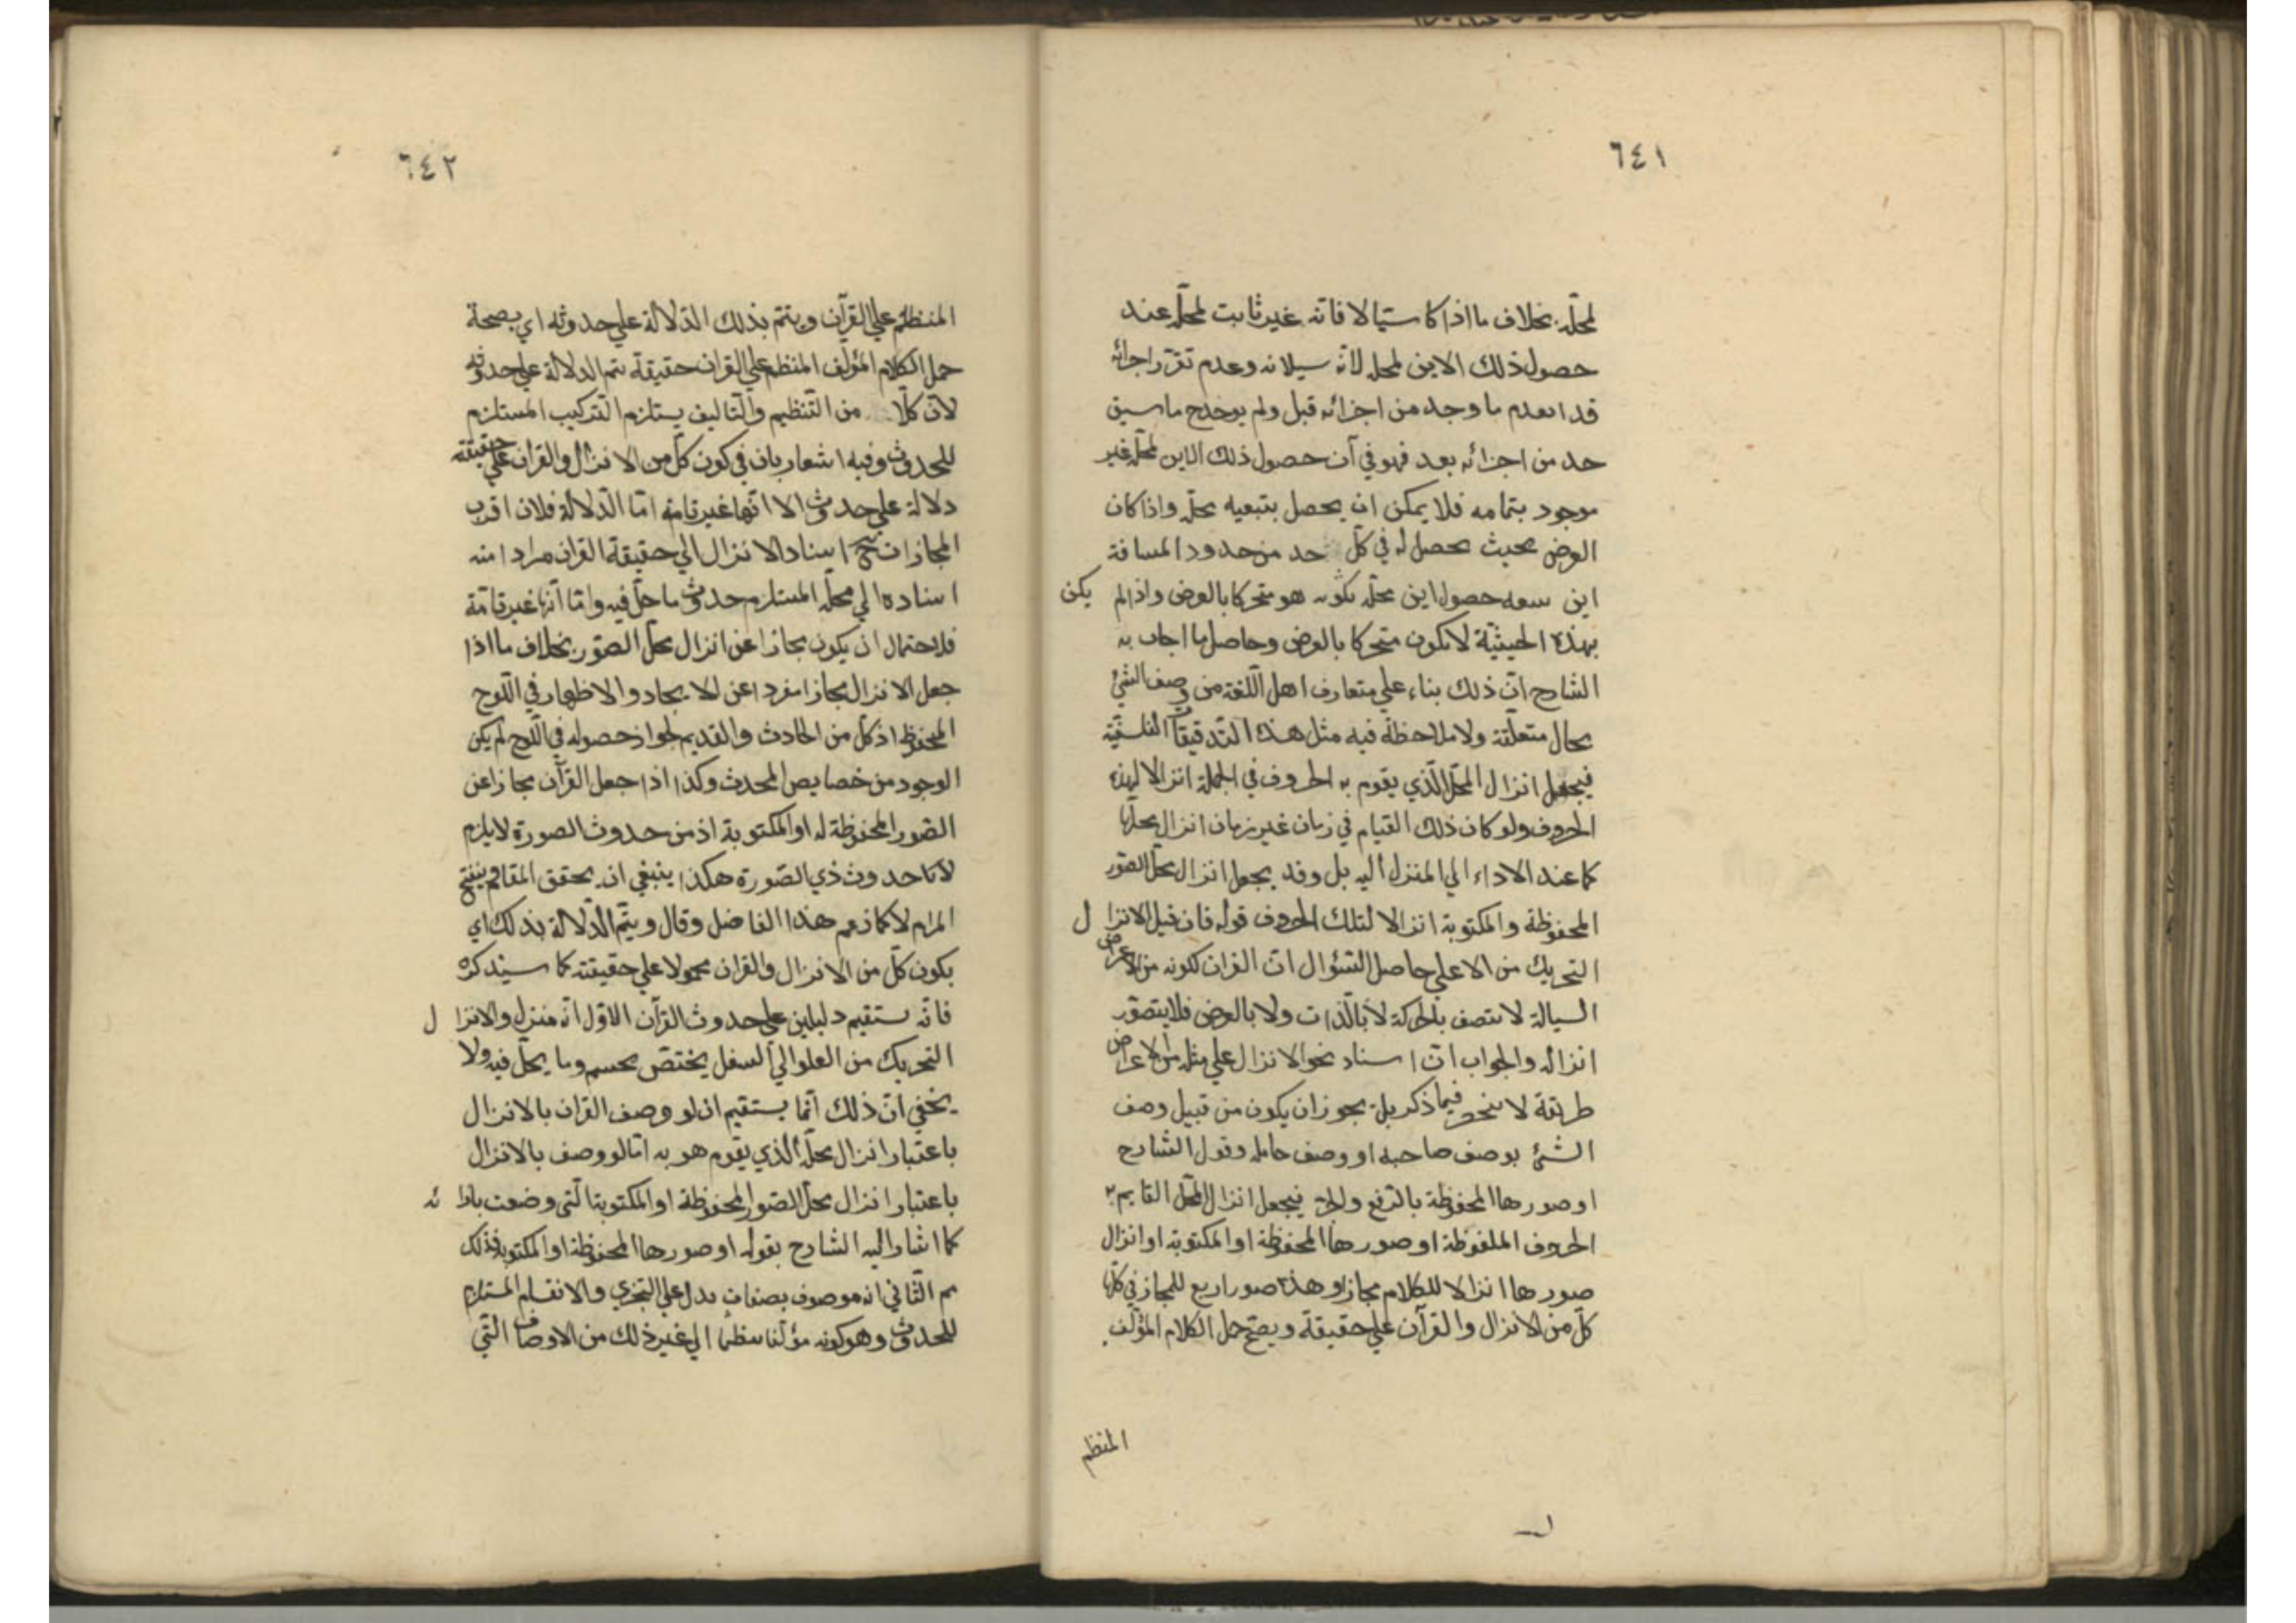 ٦٤١
لمحلّه بخلاف ما اذا كا ستيالا فانه غير ثابت لمحلّه عند
حصول ذلك الاين لمحله لانّه سيلانه وعدم تقرّر اجزائه
قد انعدم ما وجد من اجزائه قبل ولم يوجد ح ما سيق
حد من اجزائه بعد فهو في آن حصول ذلك الاين لمحلّه غير
موجود بتمامه فلا يمكن ان يحصل بتبعيه محلّه واذا كان
العرض بحيث يحصل له في كلّ حد من حدود المسافة
اين سعه حصول اين محلّه يكون هو متحركا بالعرض واذ الم يكن
بهذه الحيثيّة لا يكون متحركا بالعرض وحاصل ما اجاب به
الشارح انّ ذلك بناء علي متعارف اهل اللّغة من وصف الشئ
بحال متعلّقه ولا ملاحظة فيه مثل هذا التدقيقات الفلسفيّة
فيجعل انزال المحلّ الّذي يقوم به الحروف في الجملة انزالا لهذه
الحروف ولو كان ذلك القيام في زمان غير زمان انزال محلّها
كما عند الاداء الي المنزل اليه بل وقد يجعل انزال محلّ الصّور
المحفوظة والمكتوبة انزالا لتلك الحروف قوله فان قيل الانزا ل
التحريك من الاعلي حاصل السّؤال انّ القران لكونه من الاعراض
السيالة لا يتصف بالحركة لا بالّذات ولا بالعرض فلا يتصوّر
انزاله والجواب انّ اسناد نحو الانزال علي مثله من الاعراض
طريقة لا ينحصر فيما ذكر بل يجوز ان يكون من قبيل وصف
الشئ بوصف صاحبه او وصف حامله وقول الشارح
او صورها المحفوظة بالرّفع والجرّ فيجعل انزال المحلّ القايم به
الحروف الملفوظة او صورها المحفوظة او المكتوبة او انزال
صورها انزالا للكلام مجازا وهذه صور اربع للمجاز في كلّها
كلّ من الانزال والقرآن علي حقيقة ويصحّ حمل الكلام المؤلّف
المنظم
٦٤٢
المنظم علي القرآن ويتمّ بذلك الدّلالة علي حدوثه اي بصحة
حمل الكلام المؤلّف المنظم علي القران حقيقة يتم الدلالة علي حدوثه
لانّ كلّا من التّنظيم والتّاليف يستلزم التركيب المستلزم
للحدوث وفيه اشعار بان في كون كلّ من الانزال والقران علي حقيقته
دلالة علي حدوث الا انّها غير تامّة امّا الدّلالة فلان اقرب
المجازات نهج اسناد الانزال الي حقيقة القران مرادا منه
اسناده الي محلّه المستلزم حدوث ما حلّ فيه وامّا انّها غير تامّة
فلاحتمال ان يكون مجازا عن انزال محلّ الصّور بخلاف ما اذا
جعل الانزال مجازا مفردا عن الايجاد والاظهار في اللّوح
المحفوظ اذ كلّ من الحادث والقديم لجواز حصوله في اللّوح لم يكن
الوجود من خصايص المحدث وكذا اذا جعل القرآن مجازا عن
الصّور المحفوظة له او المكتوبة اذ من حدوث الصورة لا يلزم
لانا حدوث ذي الصّورة هكذا ينبغي ان يحقق المقام وينقّح
المرام لا كما زعم هذا الفاضل وقال ويتمّ الدّلالة بذلك اي
بكون كلّ من الانزال والقران محمولا علي حقيقته كما سيذكره
فانّه ستقيم دليلين علي حدوث القرآن الاوّل انّه منزل والانزا ل
التحريك من العلو الي السفل يختصّ بجسم وما يحلّ فيه ولا
يخفي انّ ذلك انّما يستقيم ان لو وصف القران بالانزال
باعتبار انزال محلّه الّذي يقوم هو به امّا لو وصف بالانزال
باعتبار انزال محلّ الصّور المحفوظة او المكتوبة الّتي وضعت بازا ئه
كما اشار اليه الشارح بقوله او صورها المحفوظة او المكتوبة فذلك
مم الثّاني انه موصوف بصفات يدل علي التجزي والانقسام المستلزم
للحدوث وهو كونه مؤلّفا منظما الي غير ذلك من الاوصاف الّتي